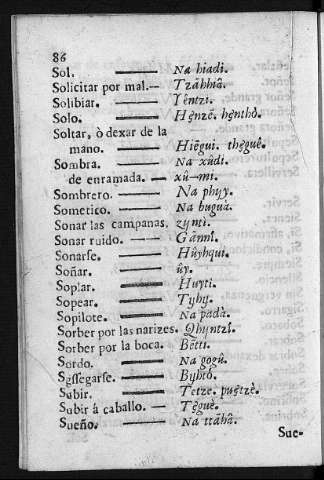 86
Sol. —— Na hiadi.
Solicitar por mal.— Tzãhhiâ.
Solibiar. —— Yêntzi.
Solo. —— Hęnzĕ. hęnthò.
Soltar, ò dexar de la
mano. —— Hiēgui. thęguê.
Sombra. —— Na xûdi.
de enramada. — xû—mi.
Sombrero. —— Na phyy.
Sometico. —— Na buguà.
Sonar las campanas. zȳnti.
Sonar ruido. —— Gãnnî.
Sonarse. —— Hûyhqui.
Soñar. —— ûy.
Soplar. —— Huyti.
Sopear. —— Tyhy.
Sopilote. —— Na padà.
Sorber por las narizes. Qhyntzî.
Sorber por la boca. Bēttì.
Sordo. —— Na gogû.
Sossegarse. —— Byhtò.
Subir. —— Tetze. puętzè.
Subir à caballo. — Tęguè.
Sueño. —— Na ttãhâ.
Sue-